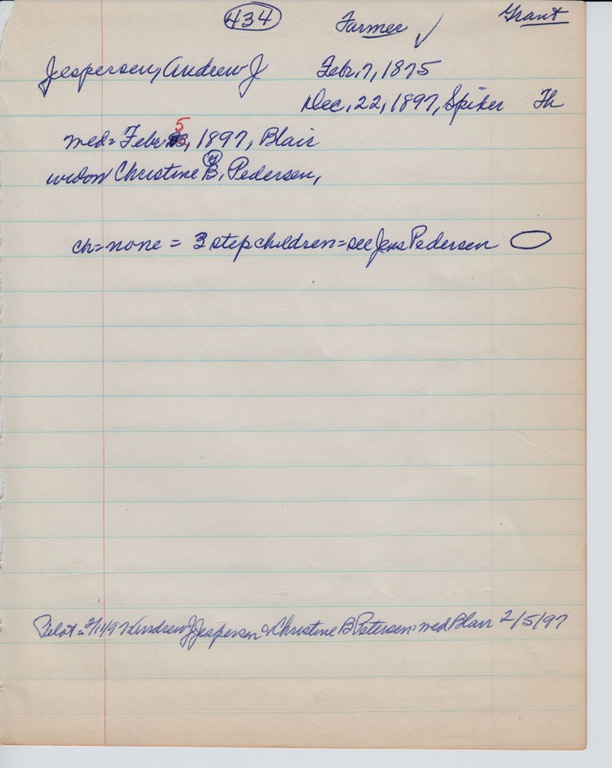 434 Farmer ✓ Grant
Jespersen, Andrew J Febr. 7, 1875
Dec. 22, 1897, Spiker Th
med = Febr. 5, 1897, Blair
widow Christine B, Pedersen,
ch = none = 3 stepchildren = see Jens Pedersen
Pilot = 2/11/97 Andrew J Jespersen & Christine B Petersen = med Blair 2/5/97